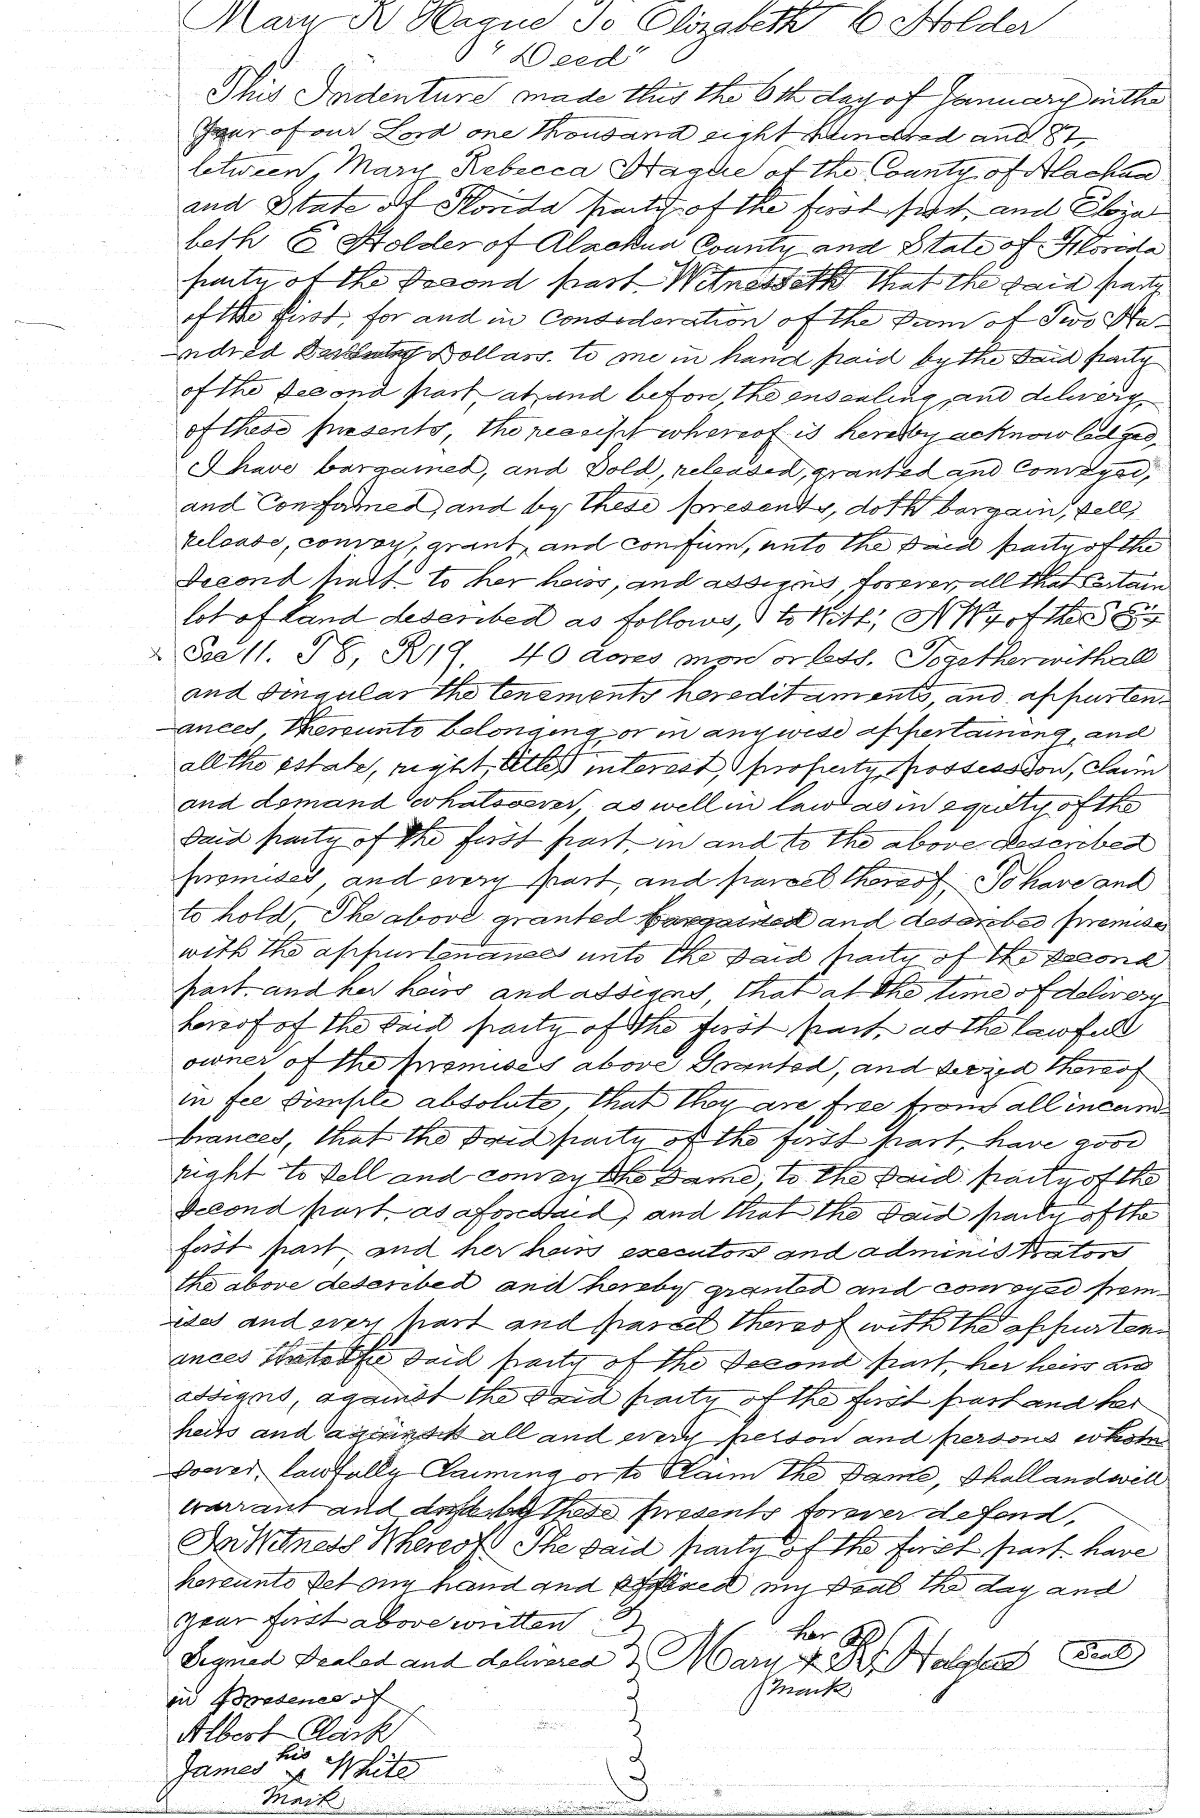 Mary R Hague To Elizabeth E Holder
"Deed"
This Indenture made this the 6th day of January in the
Year of our Lord one thousand eight hundred and 87,
between, Mary Rebecca Hague of the County of Alachua
and State of Florida party of the first part, and Eliza
beth E Holder of Alachua County and State of Florida
party of the Second part. Witnesseth that the said party
of the first, for and in Consideration of the Sum of Two Hu-
-ndred Dollars. to me in hand paid by the said party
of the second part, at and before, the ensealing, and delivery,
of these presents, the receipt whereof is hereby acknowledged,
I have bargained, and Sold, released, granted and Conveyed,
and Confirmed, and by these presents, doth bargain, sell,
release, convey, grant, and confirm, unto the said party of the
Second part to her heirs, and assigns, forever, all that Certain
lot of Land described as follows, to Witt; N W¼ of the S E¼
x Sec 11. T8, R19. 40 acres more or less. Together with all
and singular the tenements hereditaments, and appurten-
-ances, thereunto belonging, or in anywise appertaining, and
all the estate, right, title, interest, property, possession, claim
and demand whatsoever, as well in law as in equity of the
said party of the first part, in and to the above described
premises, and every part, and parcel thereof, To have and
to hold, The above granted bargained and described premises
with the appurtenances unto the said party of the second
part. and her heirs and assigns, that at the time of delivery
hereof of the said party of the first part, as the lawful
owner of the premises above Granted, and seized thereof
in fee simple absolute, that they are free from all incum-
-brances, that the said party of the first part, have good
right to sell and convey the same, to the said party of the
second part, as aforesaid, and that the said party of the
first part, and her heirs executors and administrators
the above described and hereby granted and conveyed prem-
-ises and every part and parcel thereof with the appurten-
ances the said party of the second part, her heirs and
assigns, against the said party of the first part and her
heirs and against all and every person and persons whom
-soever, lawfully Claiming or to Claim the same, shall and will
warrant and by these presents forever defend,
In Witness Whereof, The said party of the first part have
hereunto set my hand and affixed my seal the day and
year first above written
Signed Sealed and delivered Mary her x mark R, Hague Seal
in Presence of
Albert Clark
James his x White
Mark